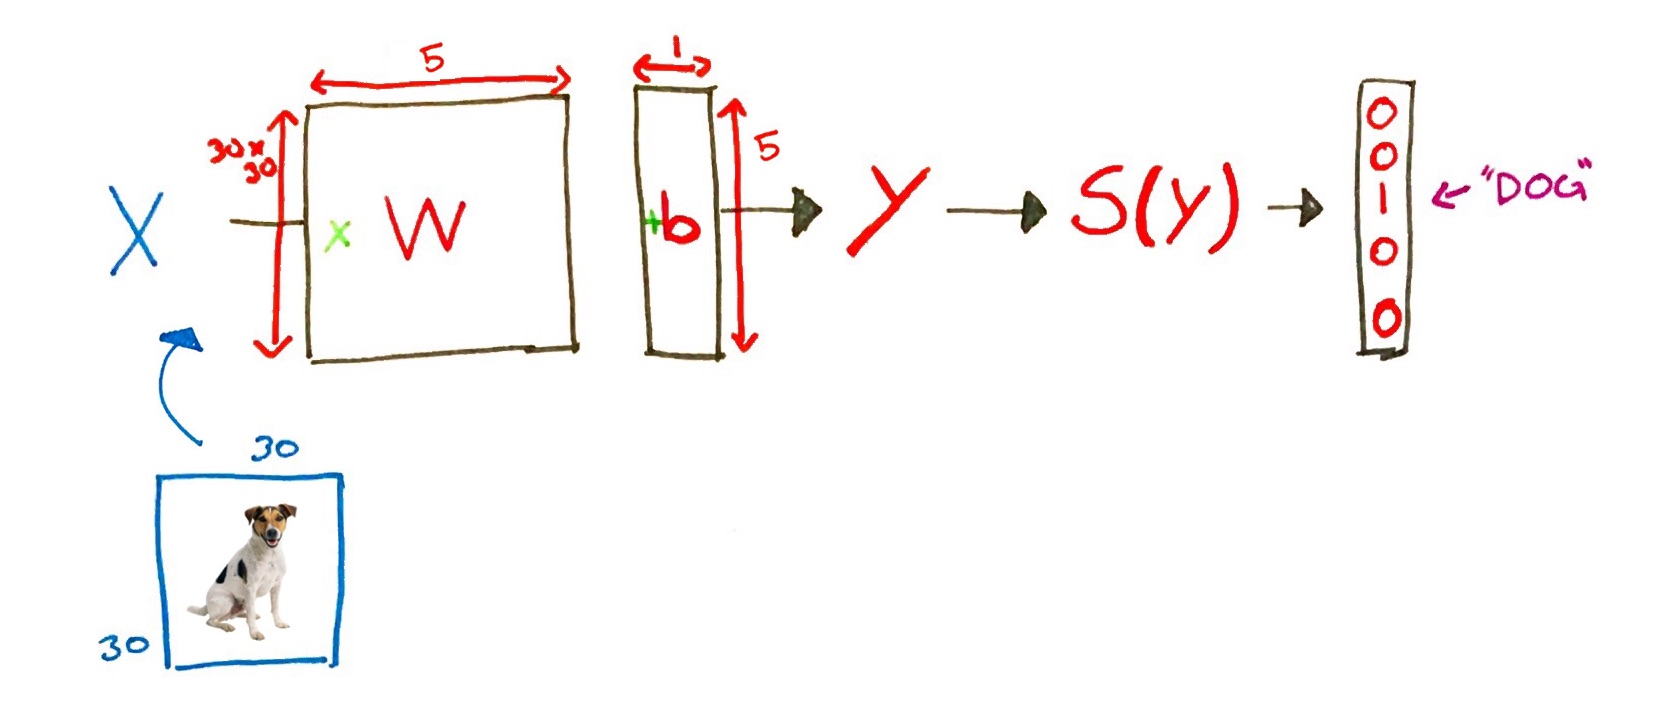 5
1
30x
30
5
X
x W
+b
Y
S(Y)
0
0
1
0
0
"DOG"
30
30